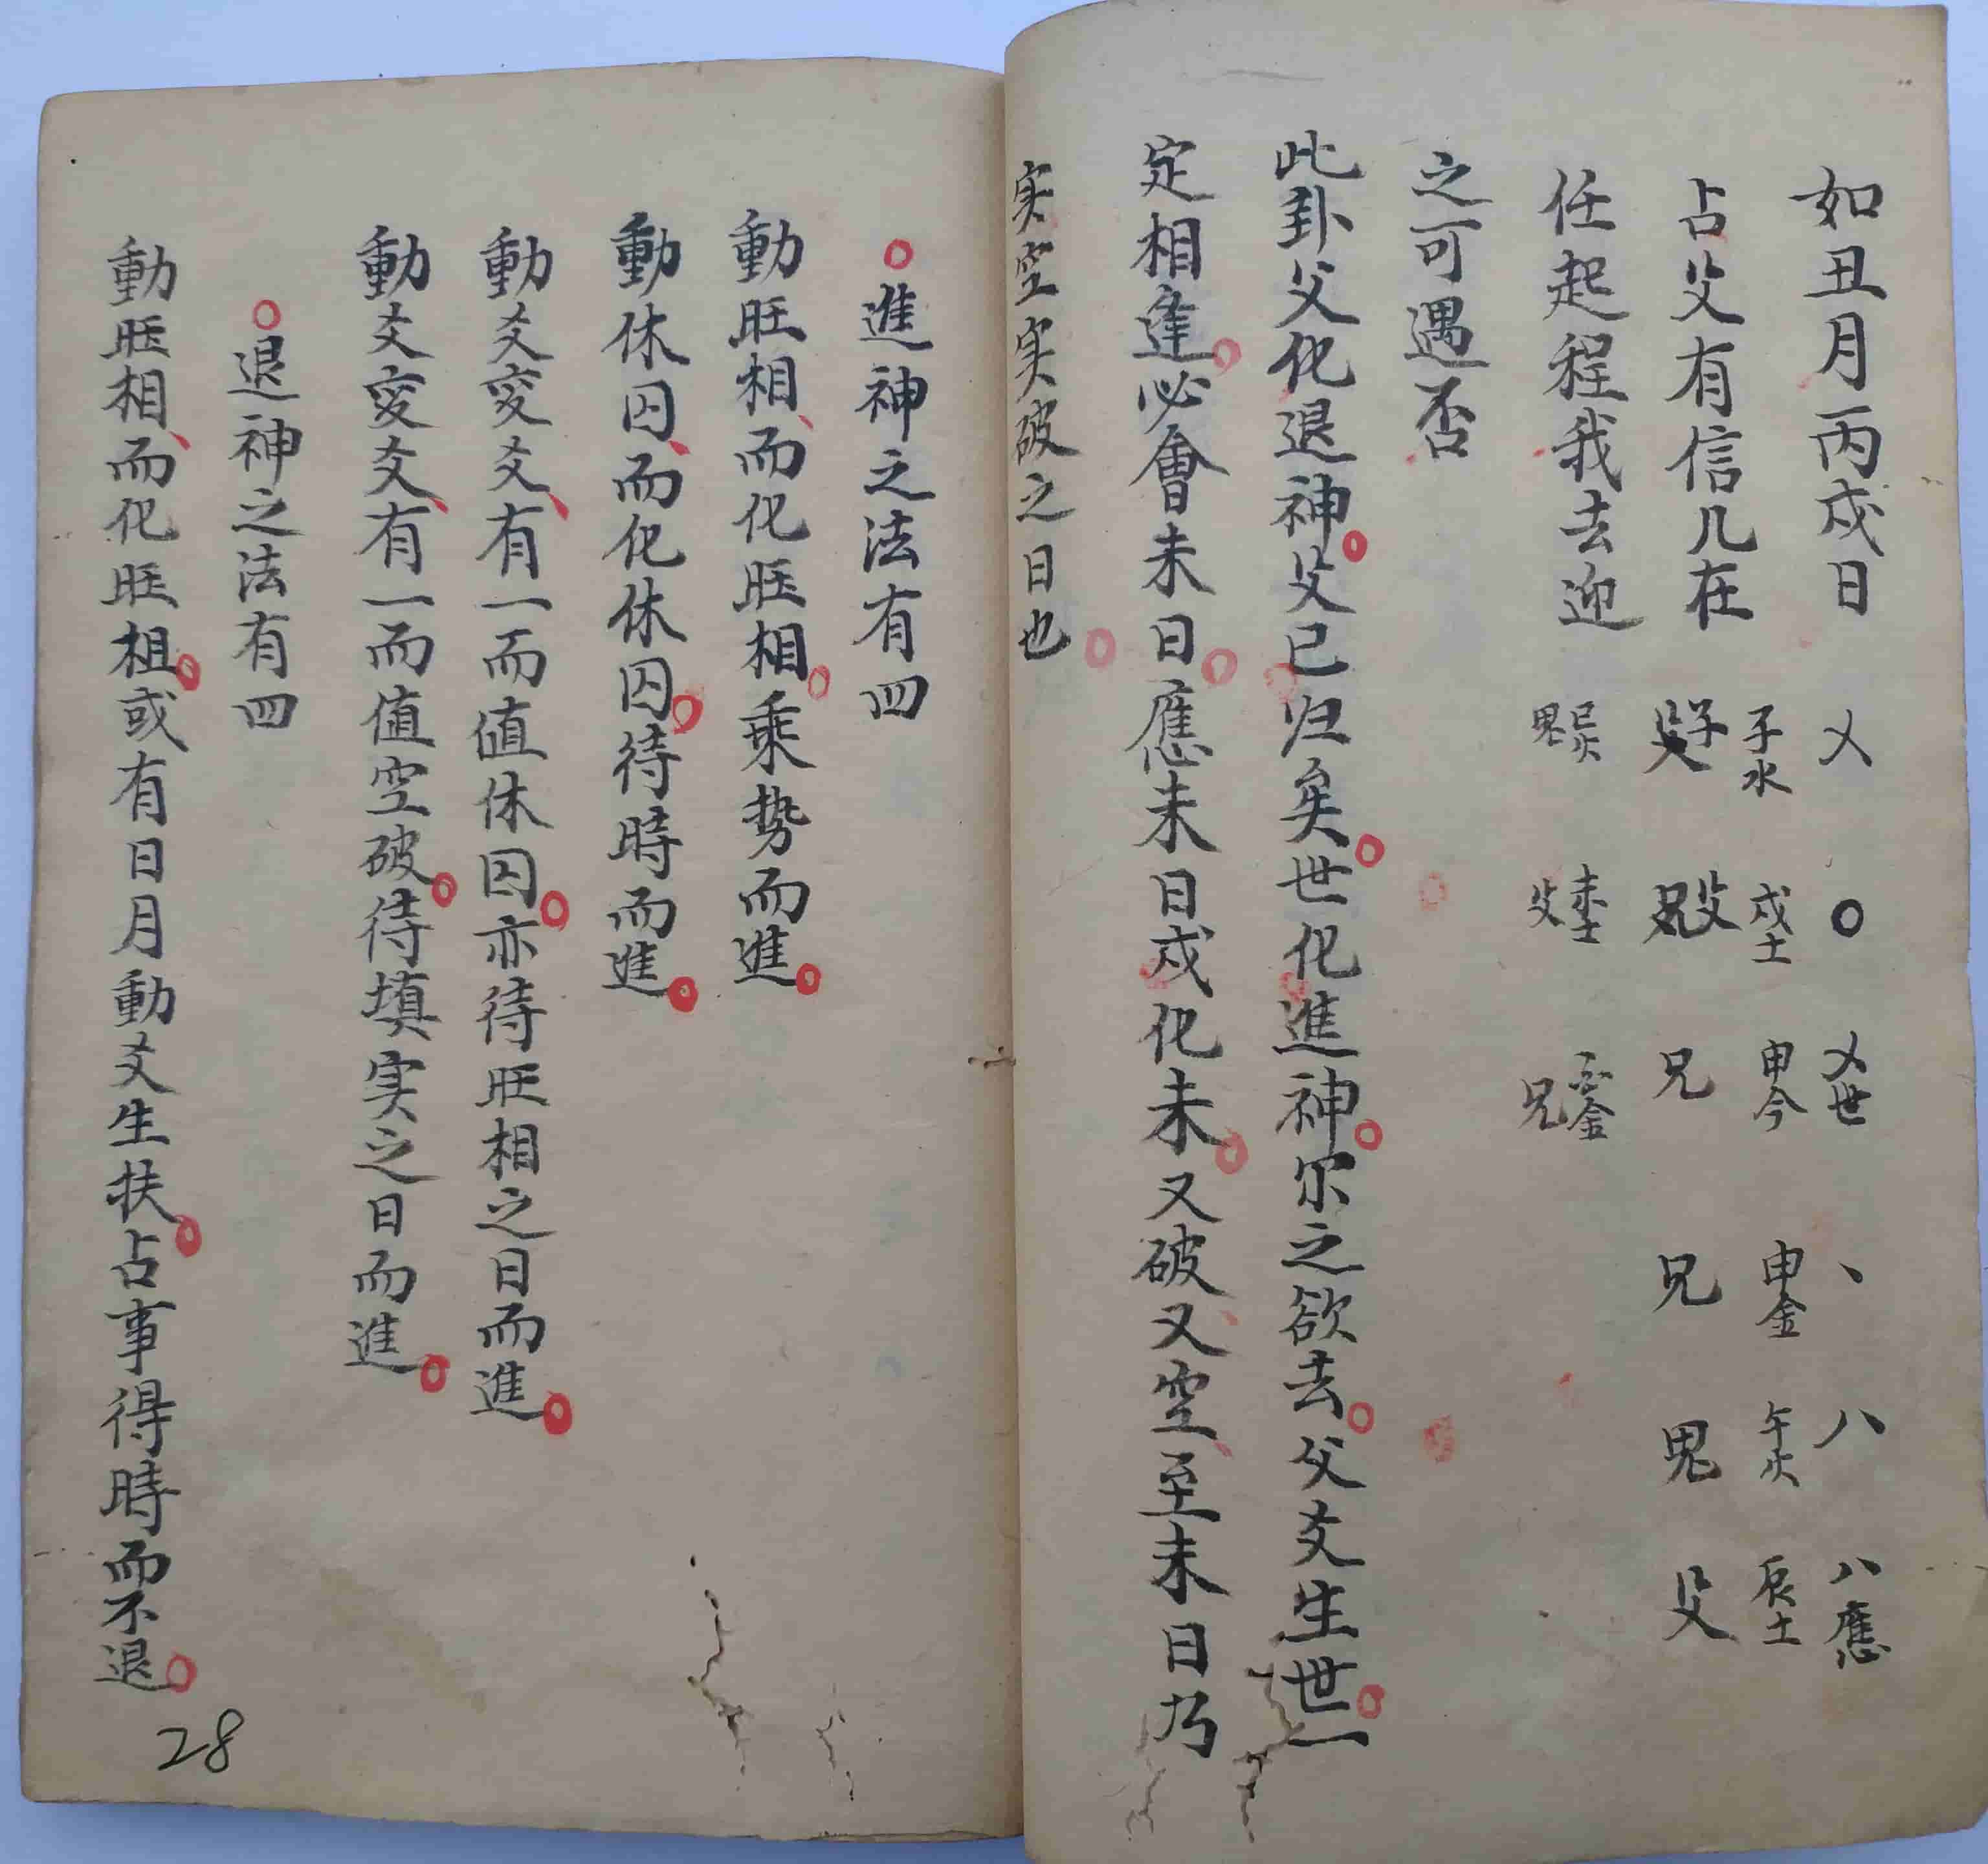 如丑月丙戍日
占父有信几在
任起程我去迎
之可遇否
乂 〇 乂世 、 八 八應
子水 戍土 申今 申金 午火 辰土
子 父 兄 兄 鬼 父
巳火 未土 酉金
鬼 父 兄
此卦父化退神父已归矣世化進神尔之欲去父爻生世一
定相逢必會未日應未日戍化未又破又空至未日乃
实空实破之日也
〇進神之法有四
動旺相、而化旺相乘势而進
動休囚、而化休囚待時而進
動爻变爻、有一而值休囚亦待旺相之日而進
動爻变爻、有一而值空破待填实之日而進
〇退神之法有四
動旺相、而化旺相或有日月動爻生扶占事得時而不退
28